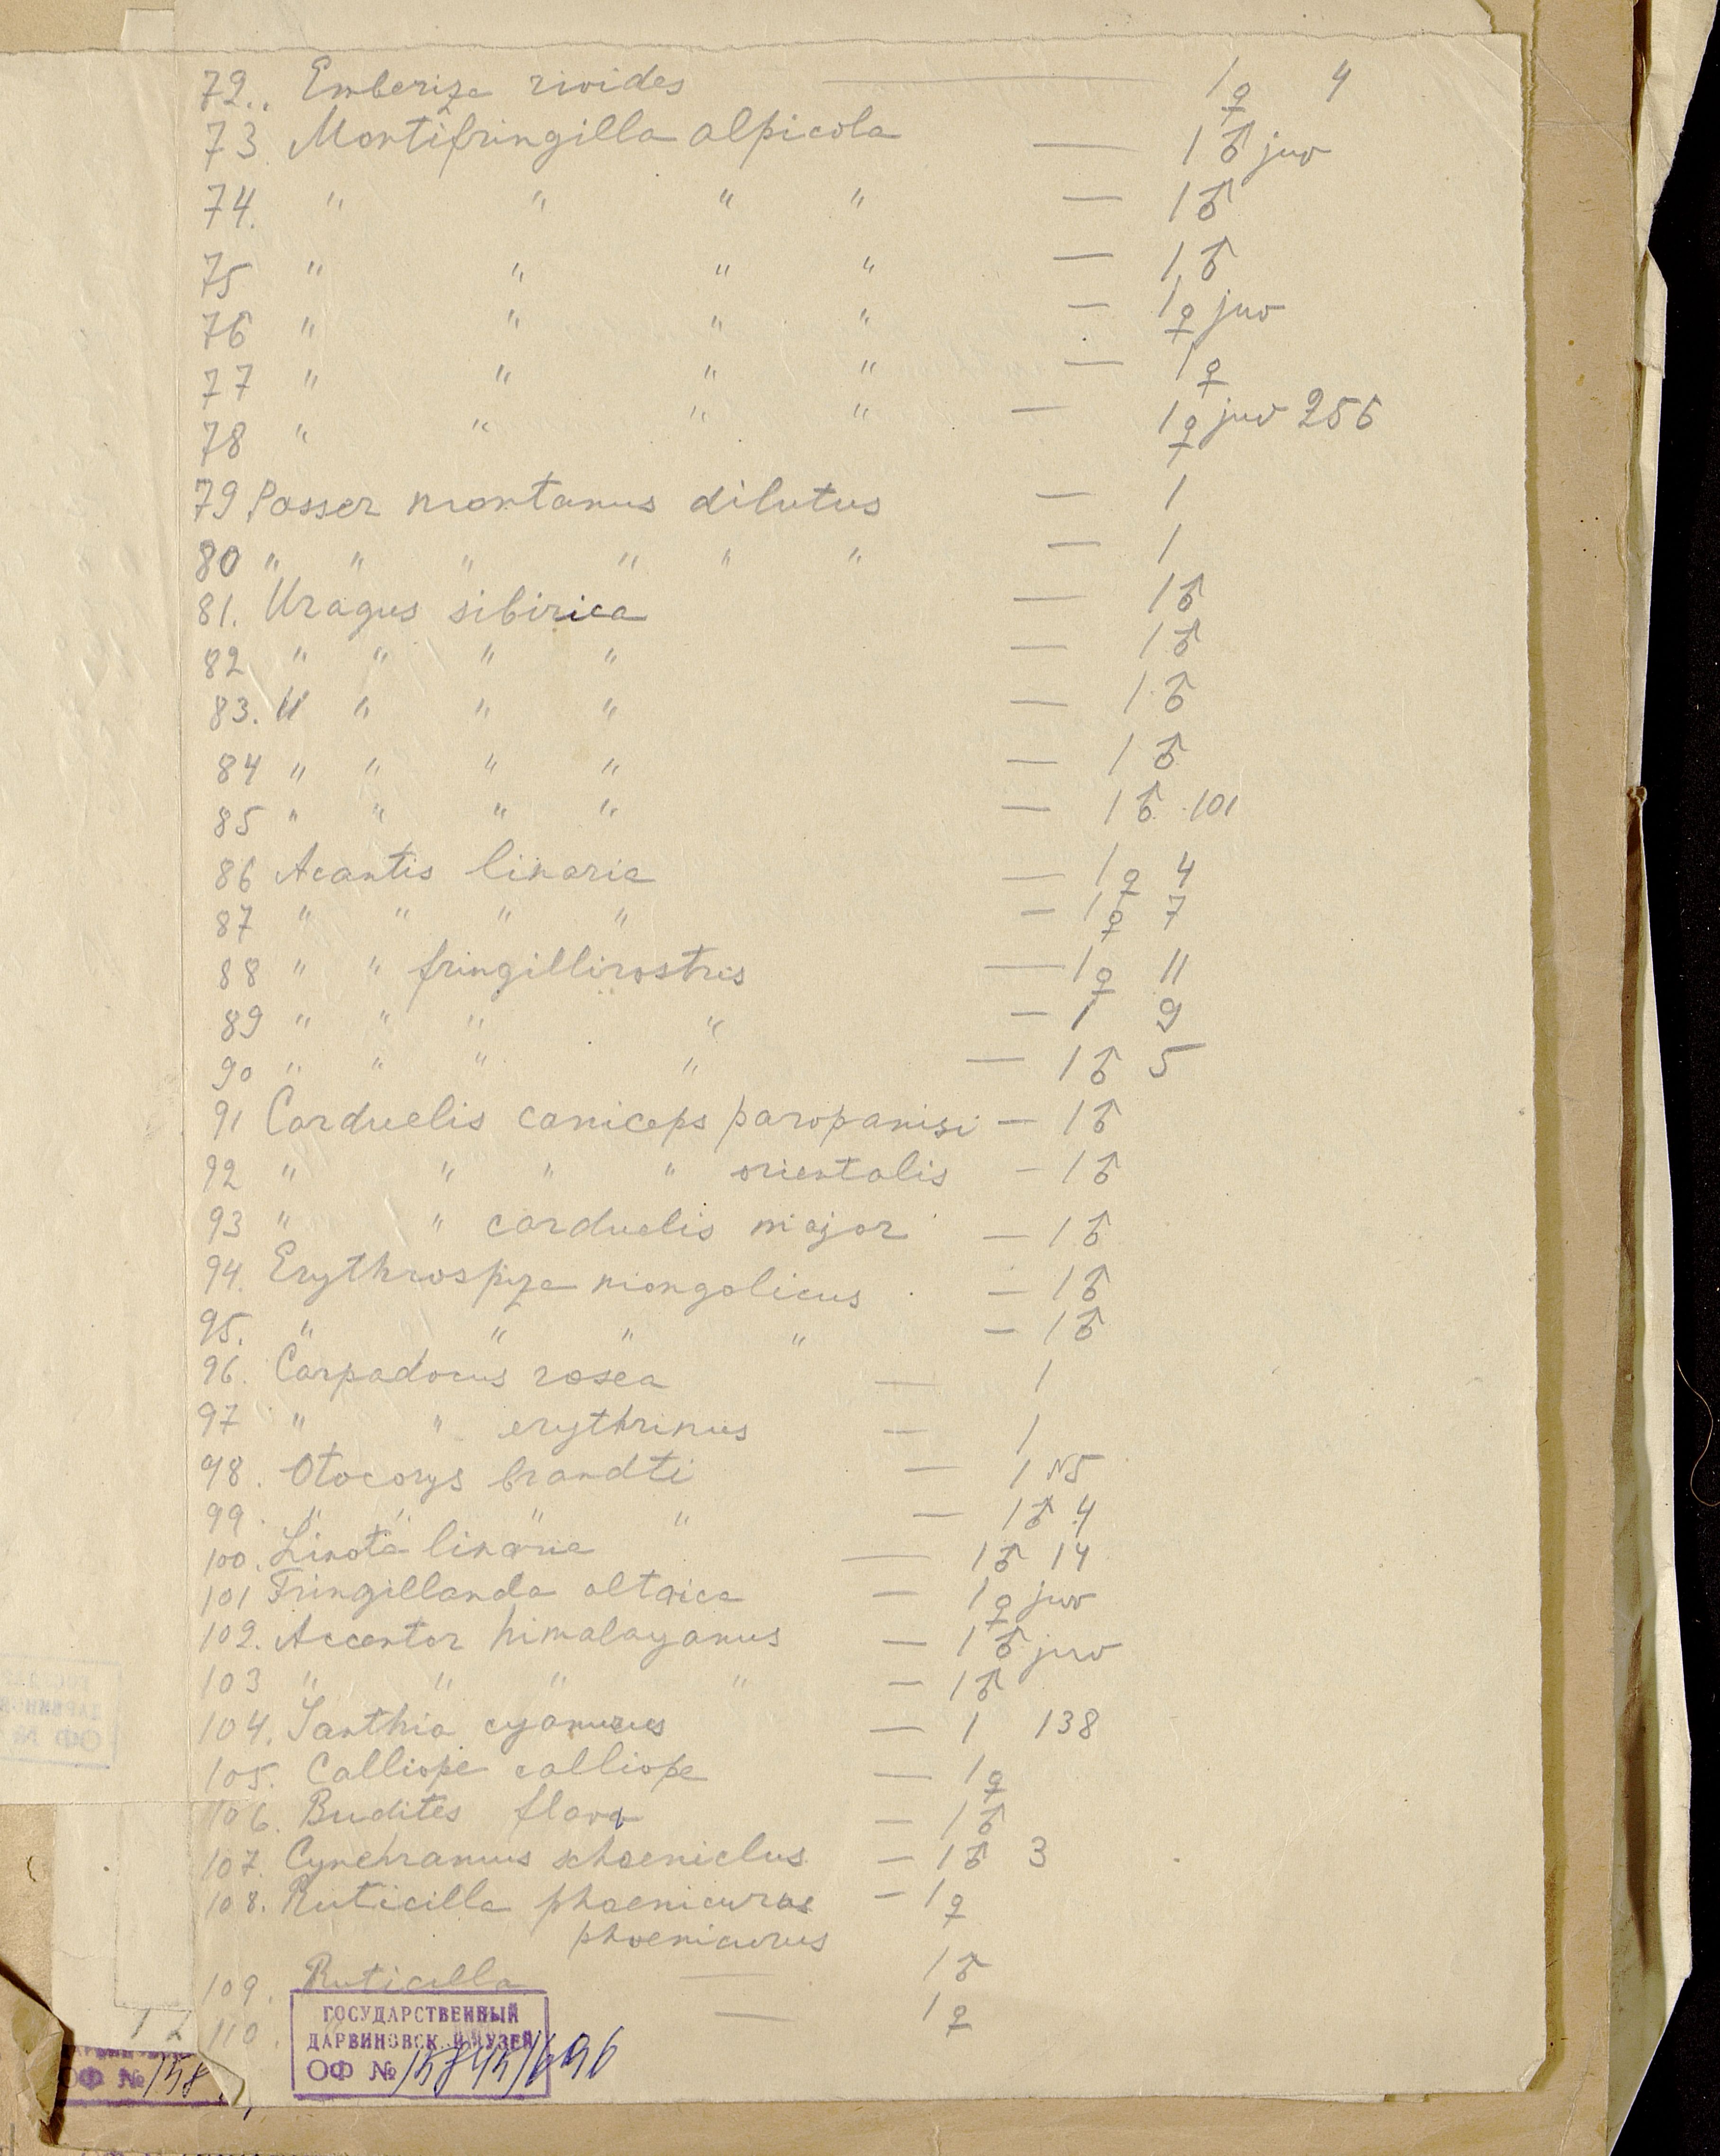 72.. Emberiza rioides — 1♀ 4
73 Montifringilla alpicola — 1♂ juv
74. " " " " — 1♂
75 " " " " — 1♂
76 " " " " — 1♀ juv
77 " " " " — 1♀
78 " " " " — 1♀ juv 256
79 Passer montanus dilutus — 1
80 " " " " " " — 1
81. Uragus sibirica — 1♂
82 " " " " — 1♂
83. " " " " — 1♂
84 " " " " — 1♂
85 " " " " — 1♂ 101
86 Acantis linaria — 1♀ 4
87 " " " " — 1♀ 7
88 " " fringillirostris — 1♀ 11
89 " " " " — 1 9
90 " " " " — 1♂ 5
91 Carduelis caniceps paropanisi — 1♂
92 " " " " orientalis — 1♂
93 " " carduelis major — 1♂
94. Erythrospiza mongolicus — 1♂
95. " " " " — 1♂
96. Carpadocus rosea — 1
97 " " erythrinus — 1
98. Otocorys brandti — 1 N5
99. " " " " — 1♂ 4
100. Linota linaria — 1♂ 14
101 Fringillauda altaica — 1♀ juv
102. Accentor himalayanus — 1♂ juv
103 " " " " — 1♂
104. Ianthia cyanurus — 1 138
105. Calliope calliope — 1♀
106. Budites flava — 1♂
107. Cynchramus schoeniclus — 1♂ 3
108. Ruticilla phoenicurus — 1♀
phoenicurus
109. Ruticilla — 1♂
110. — 1♀
ГОСУДАРСТВЕННЫЙ
ДАРВИНОВСКИЙ МУЗЕЙ
ОФ № 15845/696
ОФ № 158